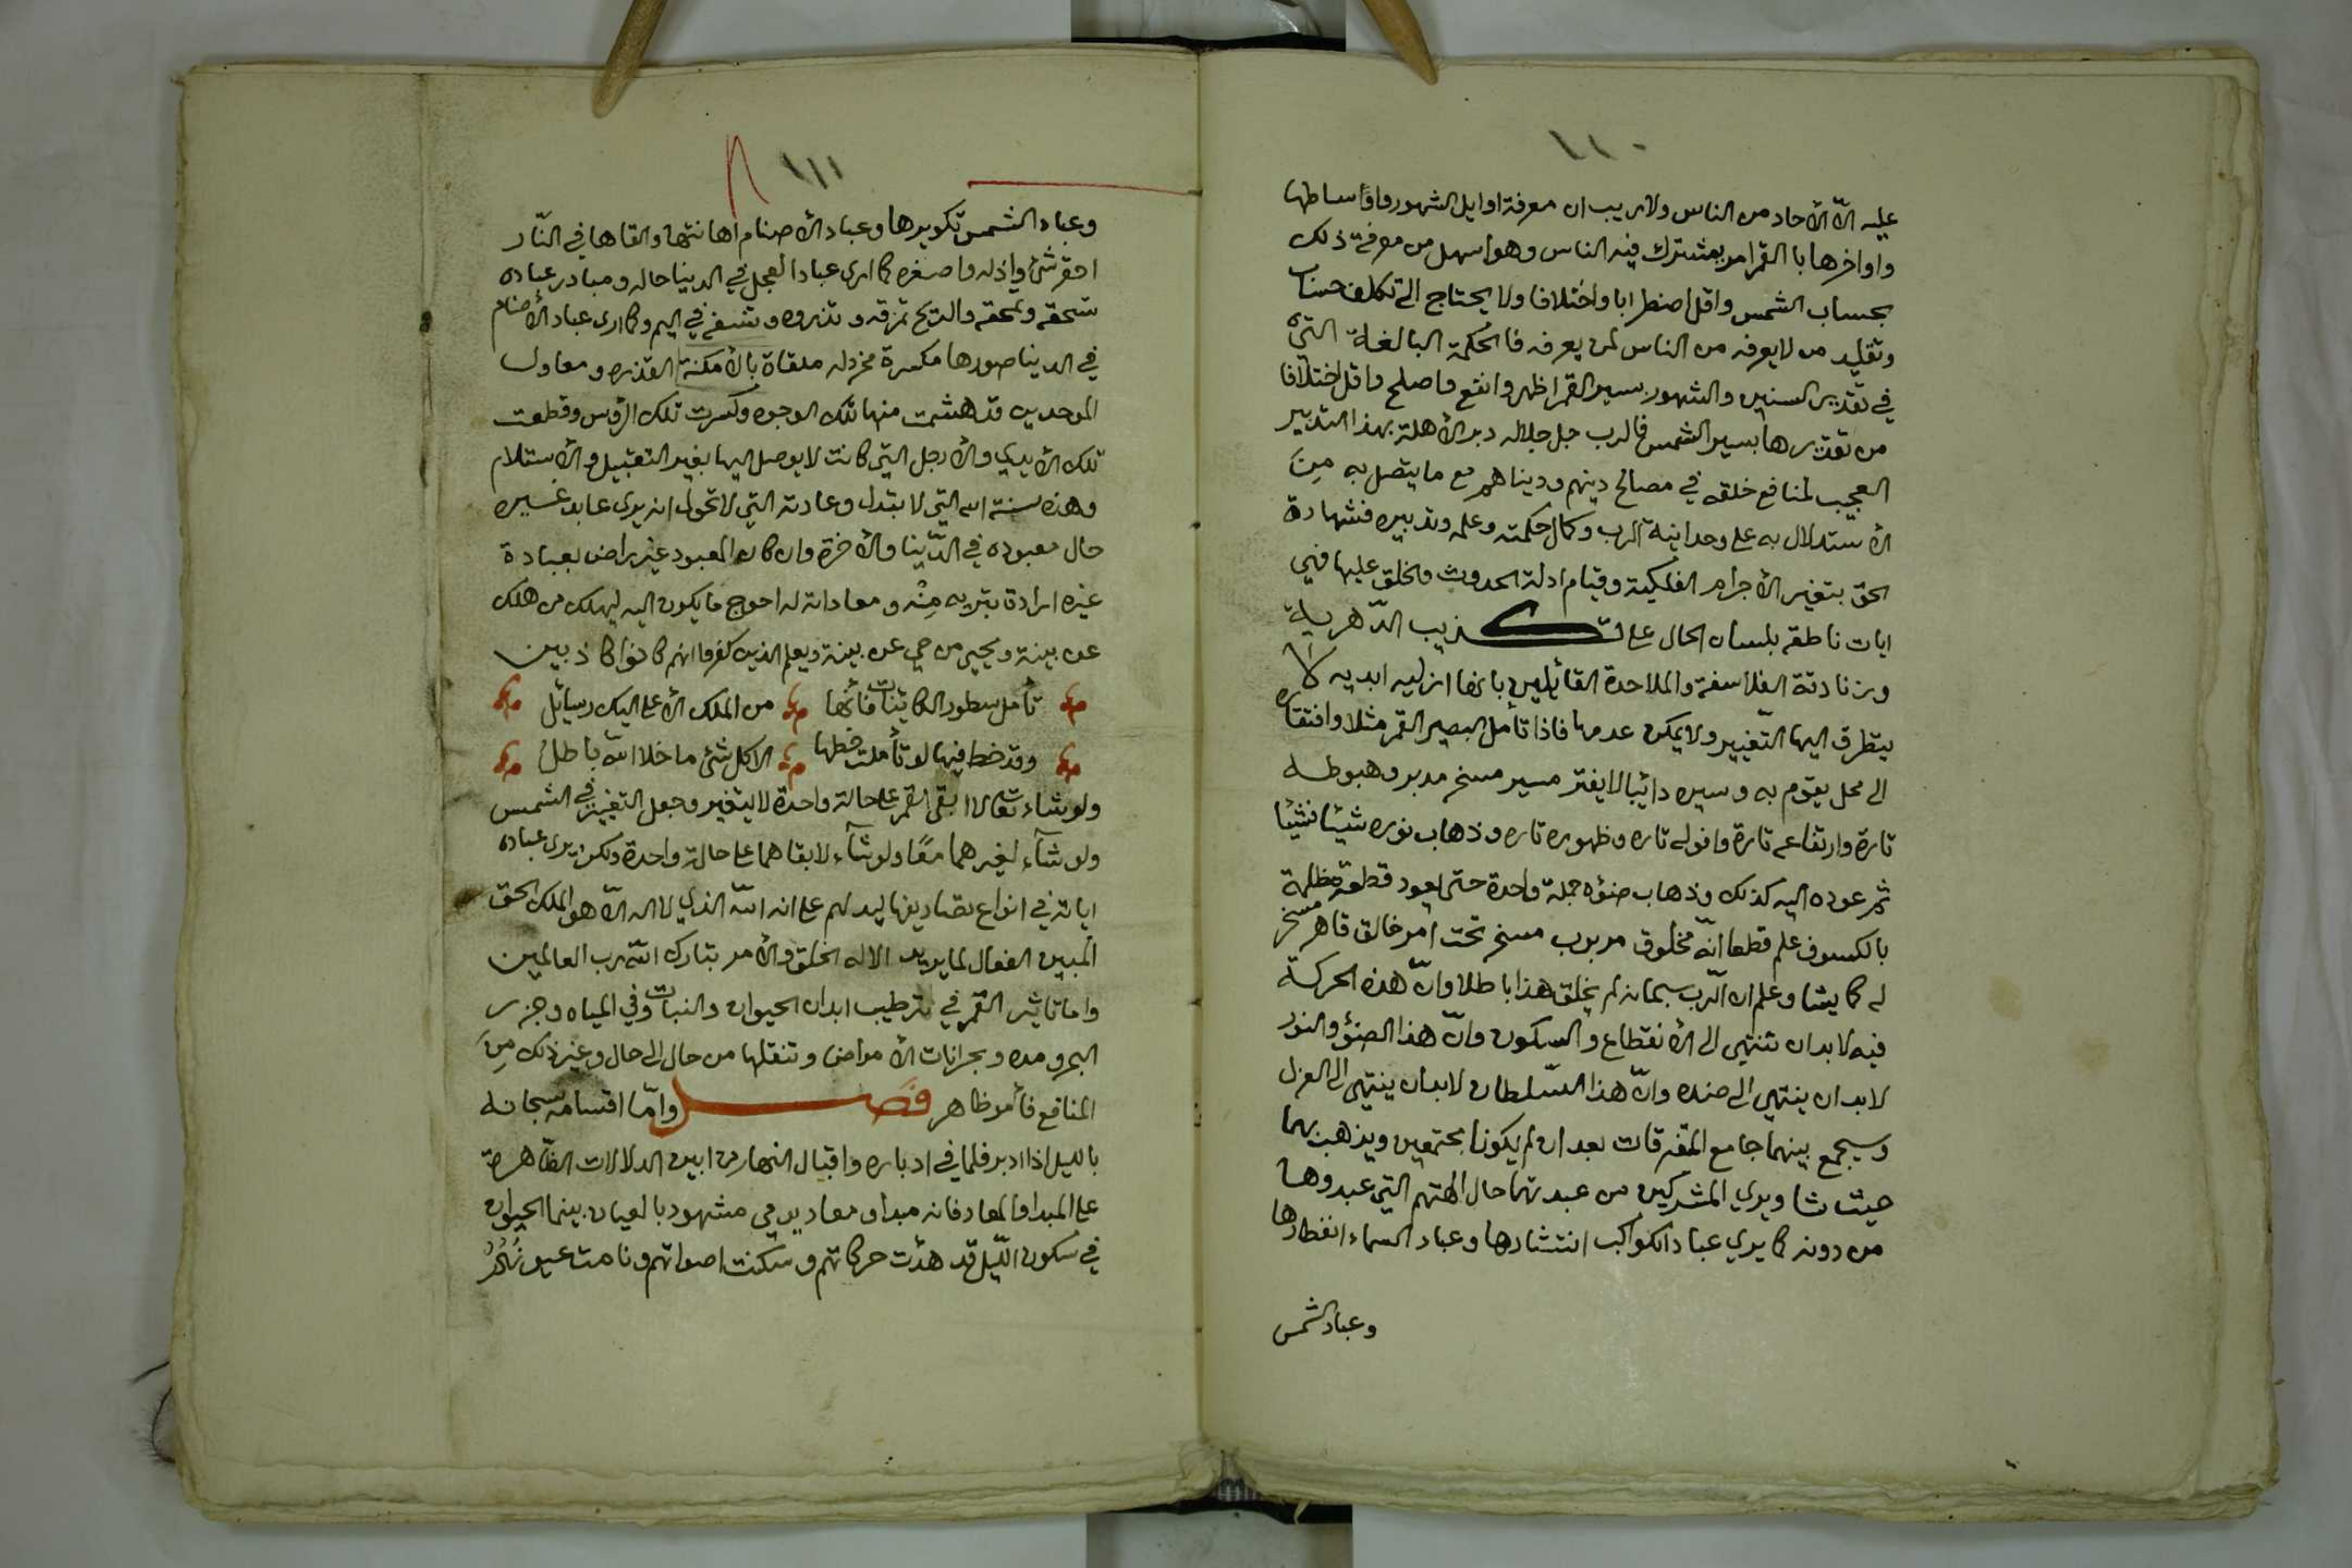 ١١٠
عليه الّا الأحاد من الناس ولاريب ان معرفة اوايل الشهور واوساطها
واواخرها با القمر امر بمشترك فيه الناس وهو اسهل من معرفة ذلك
بحساب الشمس واقل اضطرابا واختلافا ولا يحتاج الى تكلف حساب
وتقليد من لايعرفه من الناس لمن يعرفه فالحكمة البالغة التي
في تقدير السنين والشهور بسير القمر اظهر وانفع واصلح واقل اختلافا
من تقديرها بسير الشمس فالرب جل جلاله دبر الأهلة بهذا التدبير
العجيب لمنافع خلقه في مصالح دينهم ودنياهم مع ما يتصل به مِنَ
الأستدلال به على وحدانية الرب وكمال حكمته وعلمه وتدبيره فشهادة
الحق بتغير الأجرام الفلكية وقيام ادلة الحدوث والخلق عليها فهي
ايات ناطقه بلسان الحال على تكذيب الدّهرية
وزنادقة الفلاسفة والملاحدة القائلين بانها ازليه ابديه لا
يتطرق اليها التّغيير ولايمكن عدمها فاذا تأمل البصير القمر مثلا وافتقاره
الى محل يقوم به وسيره دائبا لايفتر مسير مسخر مدبر وهبوطه
تارة وارتفاعه تارة وافوله تاره وظهوره تاره وذهاب نوره شيئا فشيئا
ثم عوده اليه كذلك وذهاب ضوئه جملة واحدة حتى يعود قطعة مظلمة
بالكسوف علم قطعا انّه مخلوق مربوب مسخر تحت امر خالق قاهر مسخر
له كما يشا وعلم ان الرّب سبحانه لم يخلق هذا باطلا وانّ هذه الحركة
فيه لابد ان تنتهي الى الأنقطاع والسكون وانّ هذا الضؤ والنور
لابد ان ينتهي الى ضده وانّ هذا السّلطان لابد ان ينتهي الى العزل
وسيجمع بينهما جامع المتفرقات بعد ان لم يكونا مجتمعين ويذهب بهما
حيث شا ويري المشركين من عبدتهما حال الهتهم التي عبدوها
من دونه كما يري عباد الكواكب انتشارها وعباد السماء انفطارها
وعباد الشمس
١١١
وعباد الشمس تكويرها وعباد الأصنام اهانتها والقاها في النّار
احقر شئ واذله واصغره كما ارى عباد العجل في الدنيا حاله ومبادر عباده
تسحقه وتمحقه والريح تمزقه وتذروه وتنسفه في اليم وكما ارى عباد الأصنام
في الدنيا صورها مكسرة مخردله ملقاة بالأمكنة القذره ومعاول
الموحدين قد هشمت منها تلك الوجوه وكسرت تلك الرؤس وقطعت
تلك الأيدي والأرجل التي كانت لايوصل اليها بغير التقبيل والأستلام
وهذه سنة الله التي لا تبدل وعادته التي لا تحول انه يري عابد غيره
حال معبوده في الدّنيا والأخرة وان كان المعبود غير راض بعبادة
غيره اراده تبريه مِنْه ومعاداته له احوج ما يكون اليه ليهلك من هلك
عن بينة ويحيى من حي عن بينة ويعلم الذين كفروا انهم كانوا كاذبين
تأمل سطور الكائنات فأنها من الملك الأعلى اليك رسائل
وقد خط فيها لو تأملت خطها الا كل شئ ما خلا الله باطل
ولو شاء تعالى لابقى القمر على حالة واحدة لايتغير وجعل التغيير في الشمس
ولو شآء لغيرهما معًا ولو شآء لابقاهما على حالة واحدة ولكن يري عباده
اياته في انواع تصاريفها ليدلهم على انه الله الذي لا اله الّا هو الملك الحق
المبين الفعال لما يريد الا له الخلق والأمر تبارك الله رب العالمين
واما تاثير القمر في ترطيب ابدان الحيوان والنبات وفي المياه وجزر
البحر ومده وبحرانات الأمراض وتنقلها من حال الى حال وغير ذلك مِنَ
المنافع فأمر ظاهر فصل وامّا اقسامه سبحانه
بالليل اذا ادبر فلما في ادباره واقبال النهار من ابين الدلالات الظّاهرة
على المبدا والمعاد فانه مبداء ومعاد يومي مشهود بالعيان بينما الحيوان
في سكون اللّيل قد هدأت حركاتهم وسكنت اصواتهم ونامت عيونُهُمْ